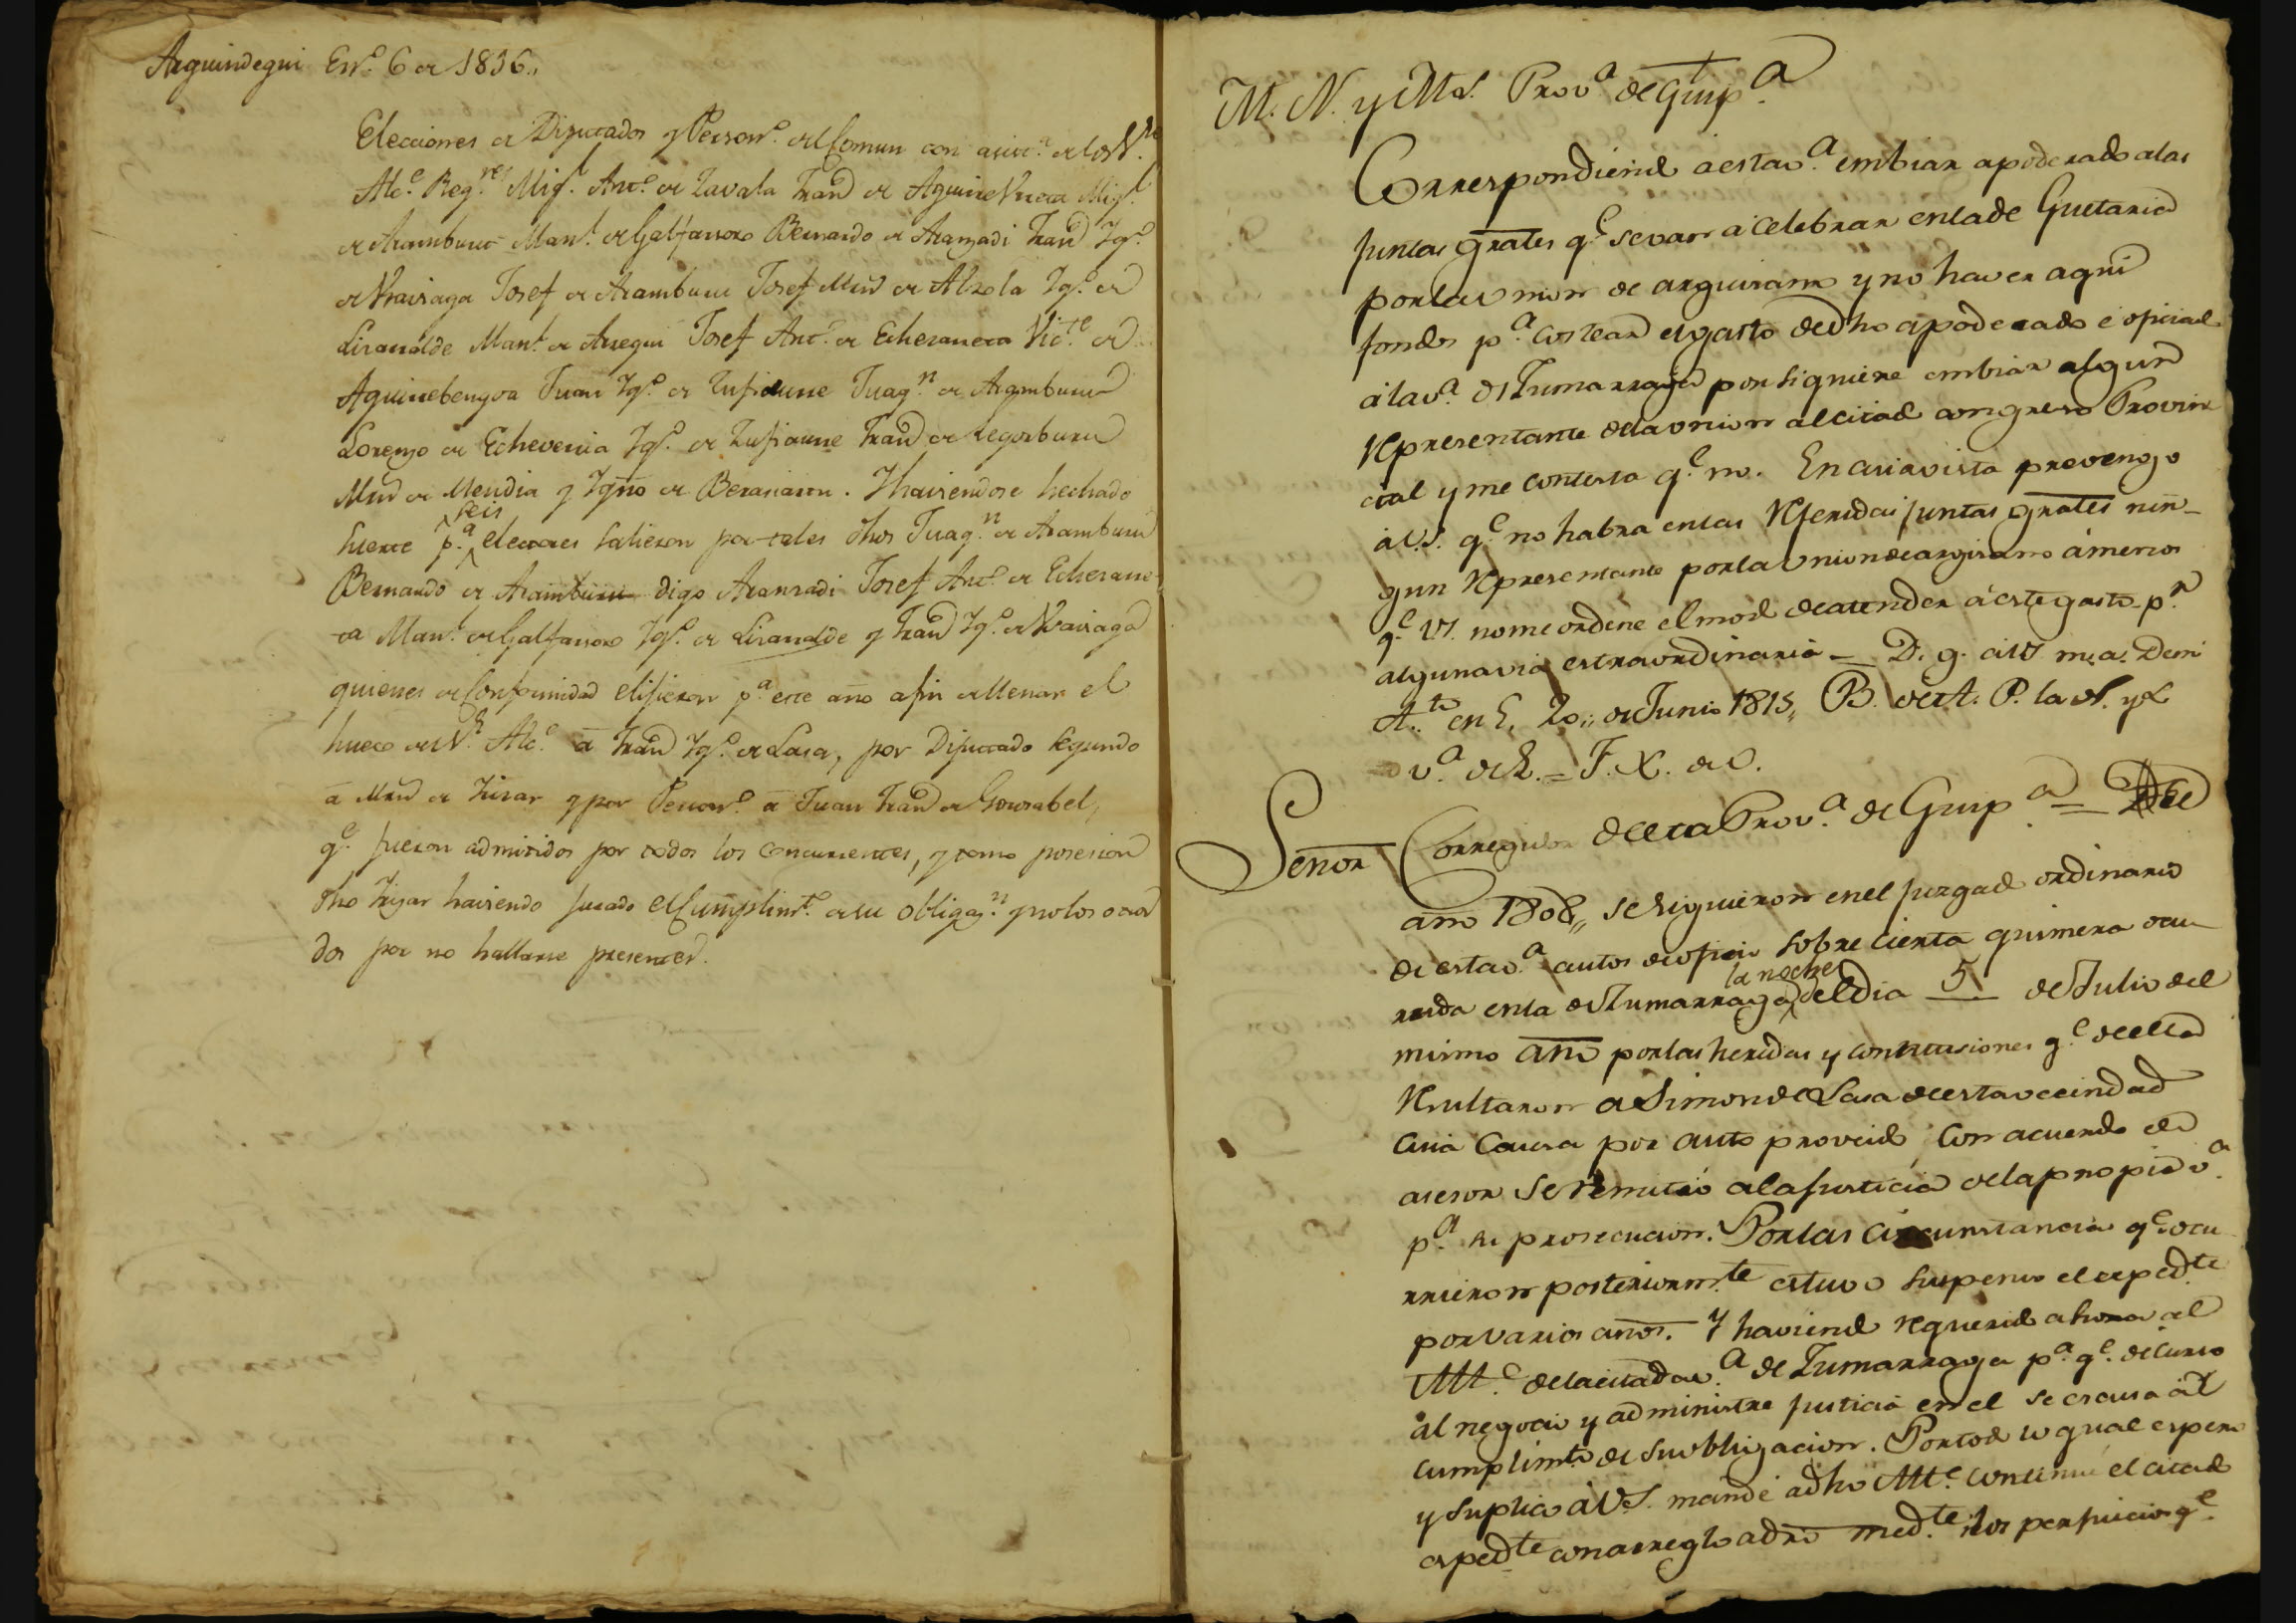 Arguindegui Enº 6 de 1816,,
Elecciones de Diputados y Personº del Comun con asistª de los Sres
Alce Regres Migl Antº de Zavala Franco de Aguirre Migl
de Aramburu Manl de Galfarsoro Bernardo de Aranzadi Franco Igº
de Josef de Aramburu Josef Min de Alzola Igº de
Lizaralde Manl de Arregui Josef Antº de Echezarreta Victe de
Aguirrebengoa Juan Igº de Zufiaurre Juaqn de Aramburu
Lorenzo de Echeverria Igº de Zufiaurre Franco de Legorburu
Min de Mendia y Igno de Beraciartu. Y haviendose hechado
suerte pª seis electores salieron por tales dhos Juaqn de Aramburu
Bernardo de Aramburu digo Aranzadi Josef Antº de Echezarre-
ta Manl de Galfarsoro Igº de Lizaralde y Franco Igº de
quienes de Conformidad elijieron pª este año a fin de llenar el
hueco del Sr Alce a Franco Igº de Lasa, por Diputado segundo
a Min de y por Personº a Juan Franco de Gorrabel,
qe fueron admitidos por todos los concurrentes, y tomo posesion
dho haviendo jurado el Cumplimto de su obligacn y no los otros
dos por no hallarse presentes.
M. N. y M. L. Provª de Guipª
Correspondiendo a esta vª embiar apoderado a las
juntas grales qe se van a celebrar en la de Guetaria
por la union de arguisano y no haver aqui
fondos pª costear el gasto de dho apoderado é oficiado
á la vª de Zumarraga por si quiere embiar algun
representante de la union al citado congreso Provin
cial y me contesta qe no. En asi prevengo
á V.S. qe no habra en las referidas juntas grales nin-
gun representante por la union de arguisano ámenos
qe VS. no me ordene el modo de atender á este gasto pr
alguna via estraordinaria = D. g. á VS m. a. De mi
Ato en 20,, de Junio 1815,, B. de A. P. la N. y L
vª de = F. X. de O.
Señor Corregidor de esta Provª de Guipª =
año 1808,, se siguieron en el juzgado ordinario
de esta vª autos de oficio sobre cierta quimera ocu-
rrida en la de Zumarraga la noche del dia 5 de Julio del
mismo año por las heridas y contusiones qe de ella
resultaron a Simon de Lasa de esta vecindad
cuia causa por auto proveido con acuerdo de
asesor se remitió a la justicia de la propia vª
pª su prosecucion. Por las circunstancias qe ocu
rrieron posteriormte estuvo suspenso el expedte
por varios años. Y haviendo requerido ahora al
Alce de la citada vª de Zumarraga pª qe de curso
al negocio y administre justicia en el se escusa al
cumplimto de su obligacion. Por todo lo qual espero
y suplico á VS. mande a dho Alce continue el citado
expedte con arreglo a dro medte los perjuicios qe